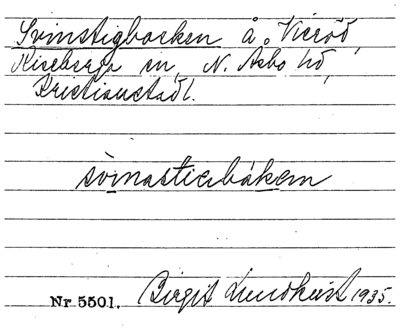 Svinstigbacken å. Vieröd,
Riseberga sn, N. Åsbo hd,
Kristianstadl.
svinastiabákem
Nr 5501. Birgit Lundkvist 1935.